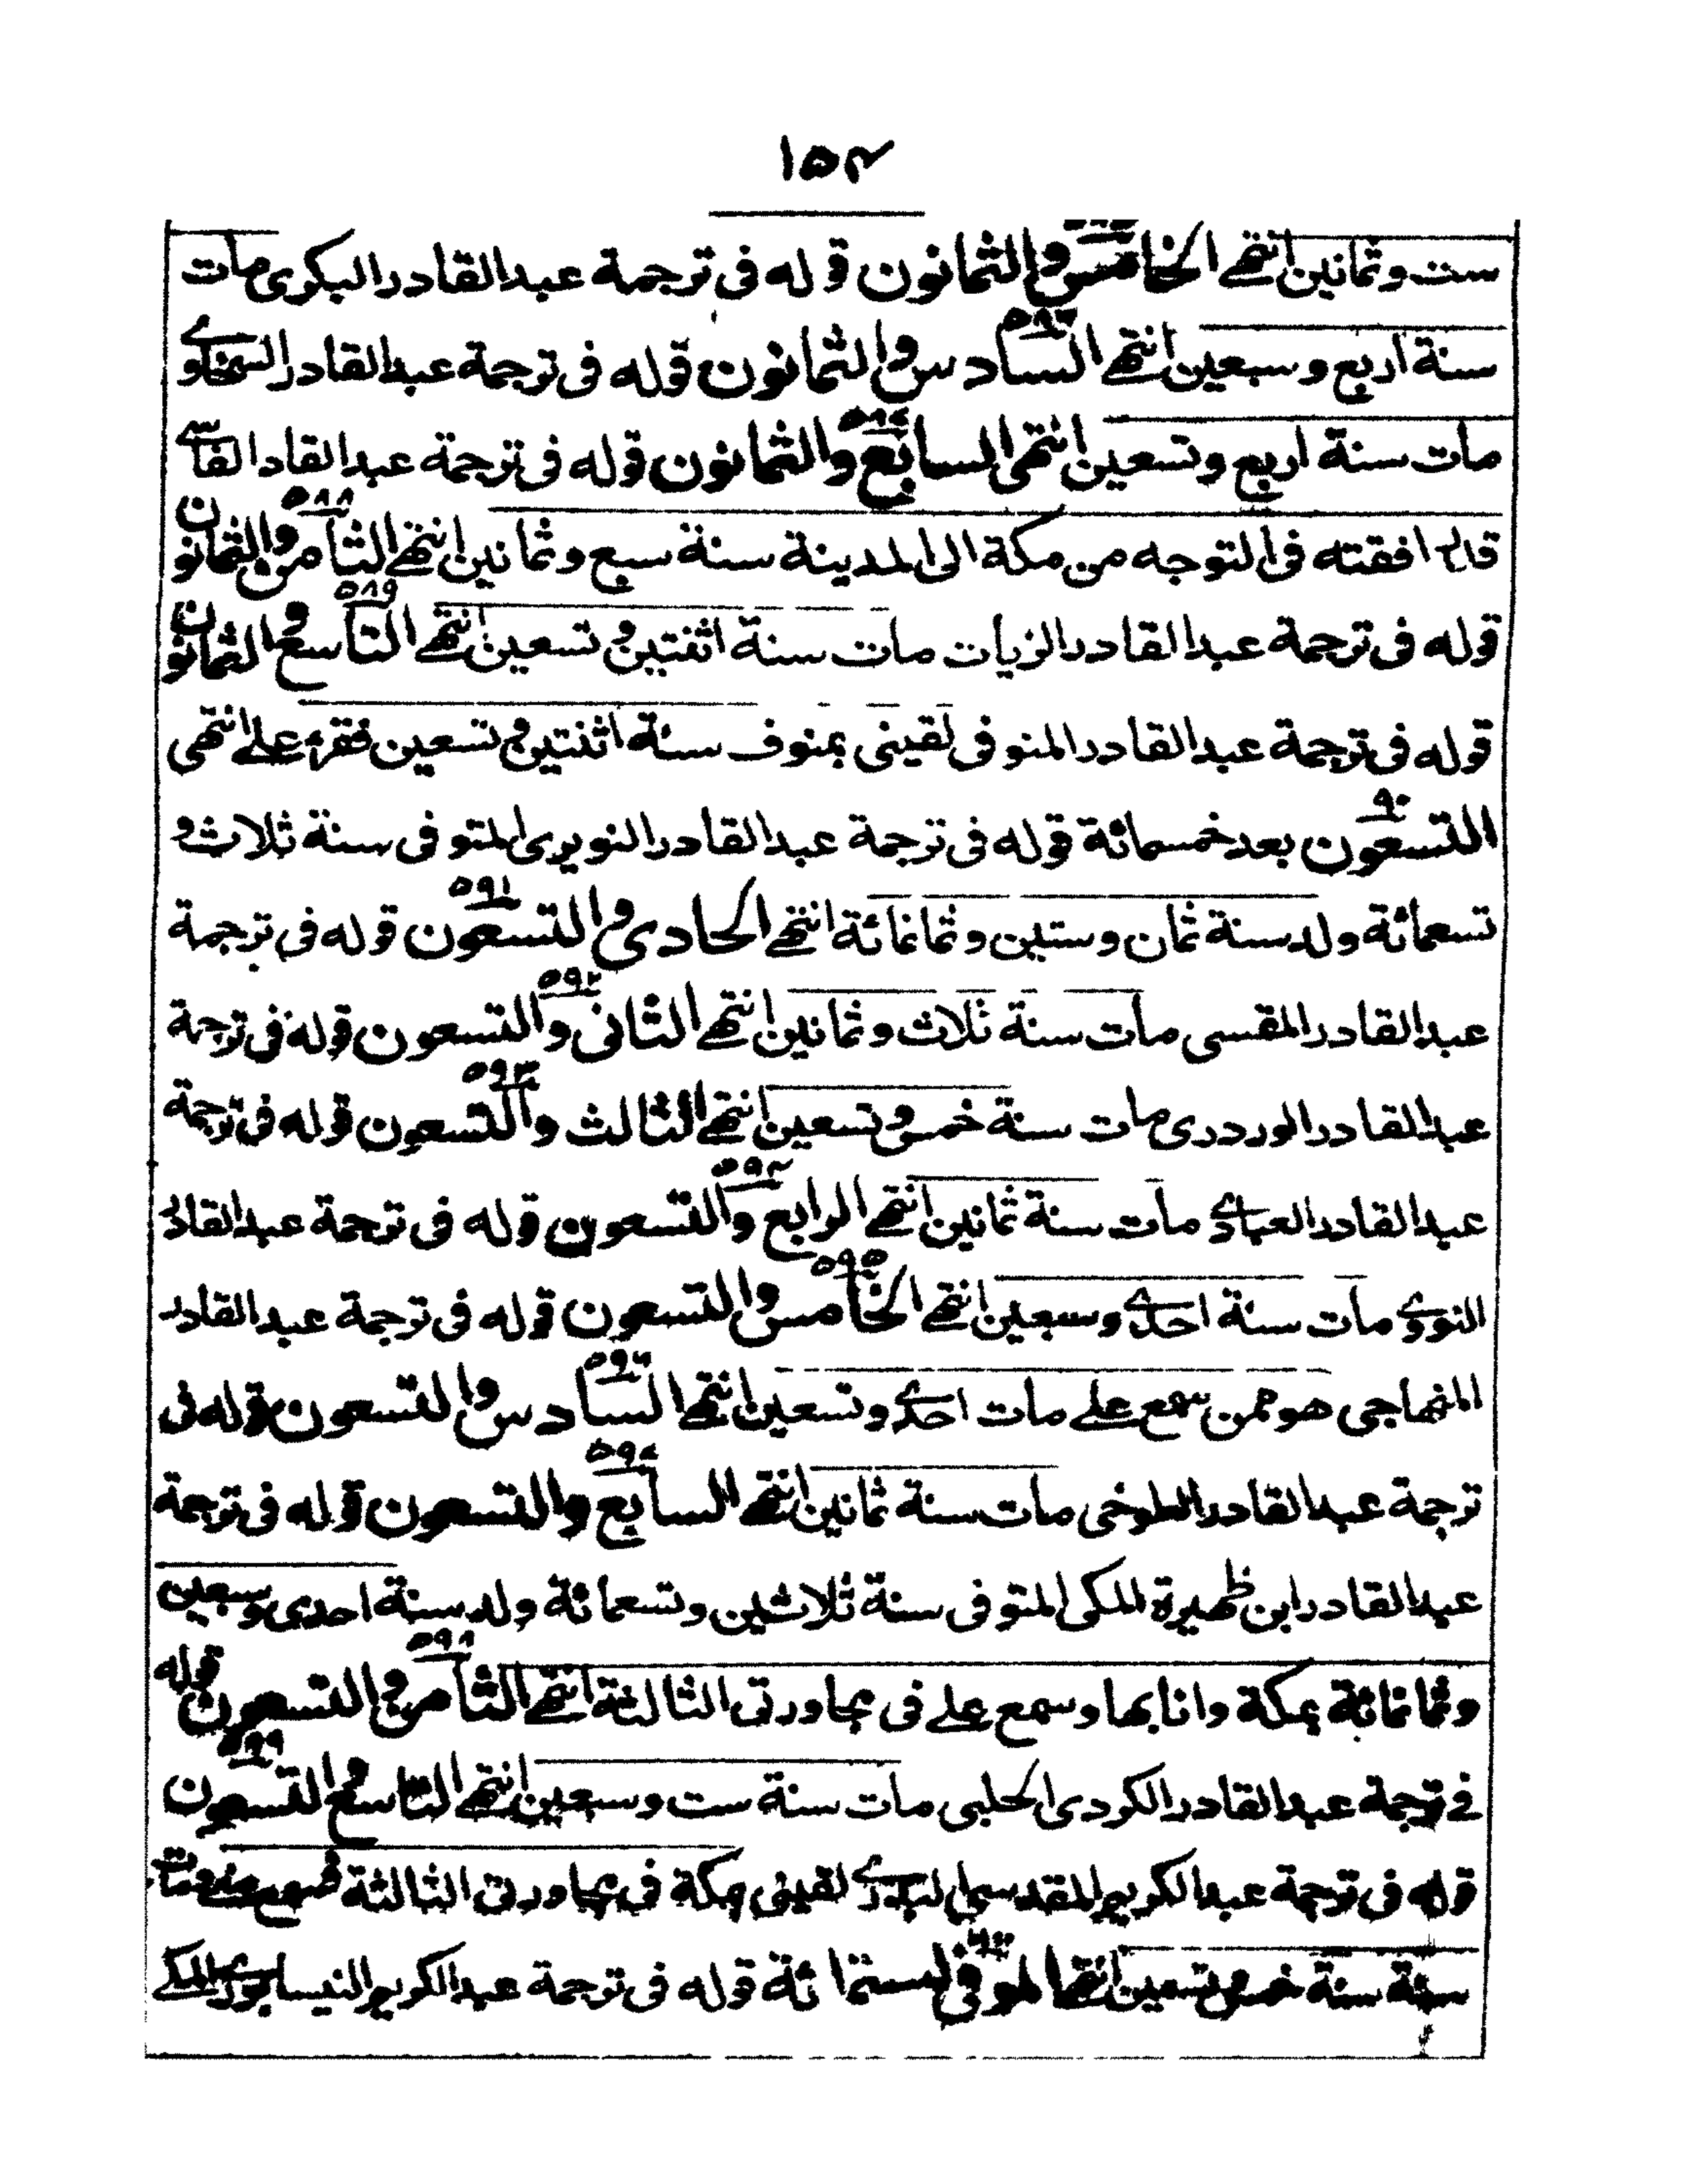 ١٥٤
ست وثمانين انتهى الخامس والثمانون قوله فى ترجمة عبد القادر البكرى مات
٥٨٦
سنة اربع وسبعين انتهى السادس والثمانون قوله فى ترجمة عبد القادر السخاوى
٥٨٧
مات سنة اربع وتسعين انتهى السابع والثمانون قوله فى ترجمة عبد القادر الفاسى
٥٨٨
فى التوجه من مكة الى المدينة سنة سبع وثمانين انتهى الثامن والثمانون
٥٨٩
قوله فى ترجمة عبد القادر الزيات مات سنة اثنتين وتسعين انتهى التاسع والثمانون
قوله فى ترجمة عبد القادر المنوفى لقينى بمنوف سنة اثنتين وتسعين فقرء على انتهى
٩٠
التسعون بعد خمسمائة قوله فى ترجمة عبد القادر النويرى المتوفى سنة ثلاث و
٥٩١
تسعمائة ولد سنة ثمان وستين وثمانمائة انتهى الحادى والتسعون قوله فى ترجمة
٥٩٢
عبد القادر المقسى مات سنة ثلاث وثمانين انتهى الثانى والتسعون قوله فى ترجمة
٥٩٣
عبد القادر الوردرى مات سنة خمس وتسعين انتهى الثالث والتسعون قوله فى ترجمة
٥٩٤
عبد القادر العبادى مات سنة ثمانين انتهى الرابع والتسعون قوله فى ترجمة عبد القادر
٥٩٥
النووى مات سنة احدى وسبعين انتهى الخامس والتسعون قوله فى ترجمة عبد القادر
٥٩٦
المنهاجى هو ممن سمع على مات احدى وتسعين انتهى السادس والتسعون قوله فى
٥٩٧
ترجمة عبد القادر الطوخى مات سنة ثمانين انتهى السابع والتسعون قوله فى ترجمة
عبد القادر ابن ظهيرة المكى المتوفى سنة ثلاثين وتسعمائة ولد سنة احدى وسبعين
٥٩٨
وثمانمائة بمكة وانا بها وسمع على فى مجاورتى الثالثة انتهى الثامن والتسعون قوله
٥٩٩
فى ترجمة عبد القادر الكردى الحلبى مات سنة ست وسبعين انتهى التاسع والتسعون
قوله فى ترجمة عبد الكريم المقدسى لقينى بمكة فى مجاورتى الثالثة
سنة خمس وتسعين انتهى الموفى لستمائة قوله فى ترجمة عبد الكريم النيسابورى المكى